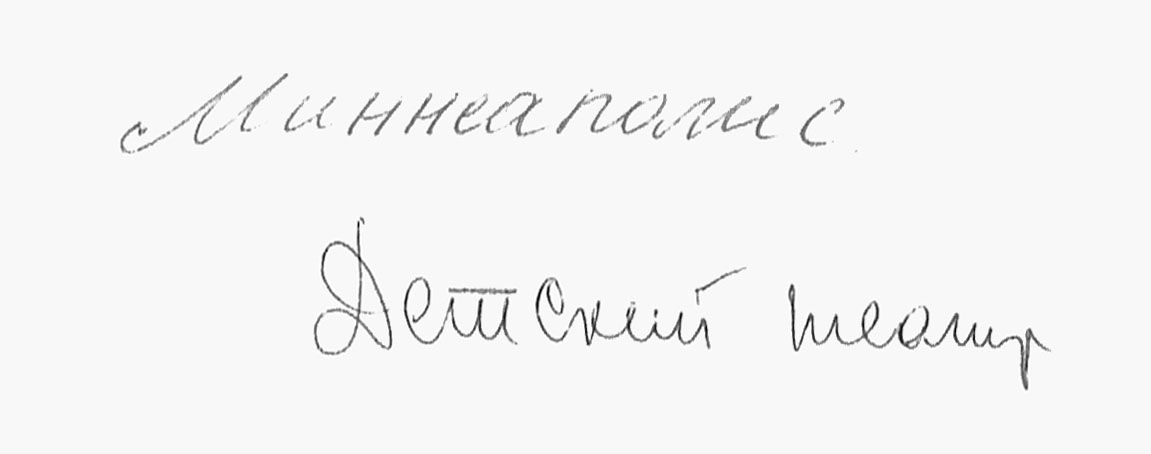 Миннеаполис
Детский театр